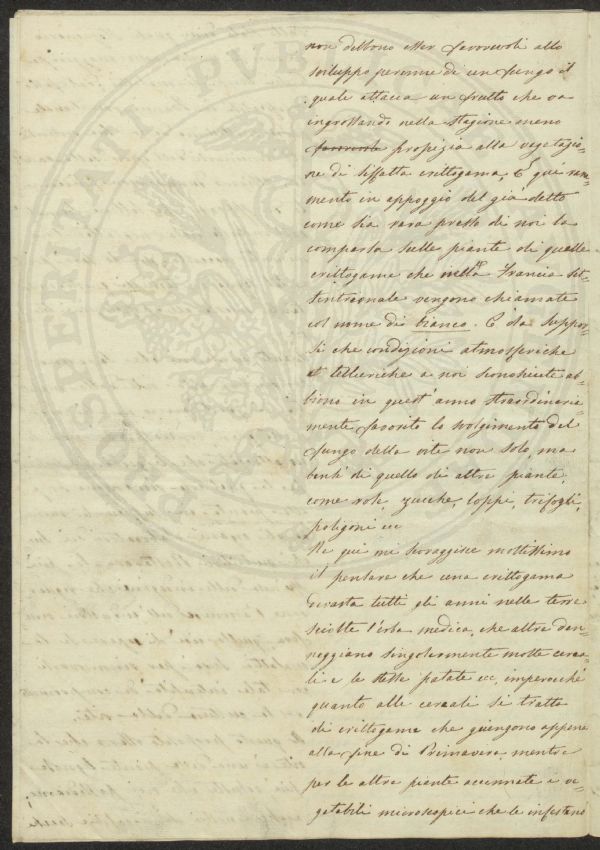 non debbono esser favorevoli allo
sviluppo perenne di un fungo il
quale attacca un frutto che va
ingrossando nella stagione meno
favorevole propizia alla vegetazio=
ne di siffatta crittogama. E qui ram=
mento in appoggio del già detto
come sia rara presso di noi la
comparsa sulle piante di quelle
crittogame che nella Francia set=
tentrionale vengono chiamate
col nome di bianco. È da suppor=
si che condizioni atmosferiche
e telluriche a noi sconosciute ab=
biano in quest'anno straordinaria=
mente favorito lo svolgimento del
fungo della vite non solo, ma
bensì di quello di altre piante,
come rose, zucche, loppi, trifogli,
poligoni ecc
Ne qui mi scoraggisce moltissimo
il pensare che una crittogama
devasta tutti gli anni nelle terre
sciolte l'erba medica, che altre dan=
neggiano singolarmente molte cerea=
li e le stesse patate ecc, imperocché
quanto alle cereali si tratta
di crittogame che giungono appena
alla fine di Primavera, mentre
per le altre piante accennate i ve=
getabili microscopici che le infestano
PROSPERITATI PVB